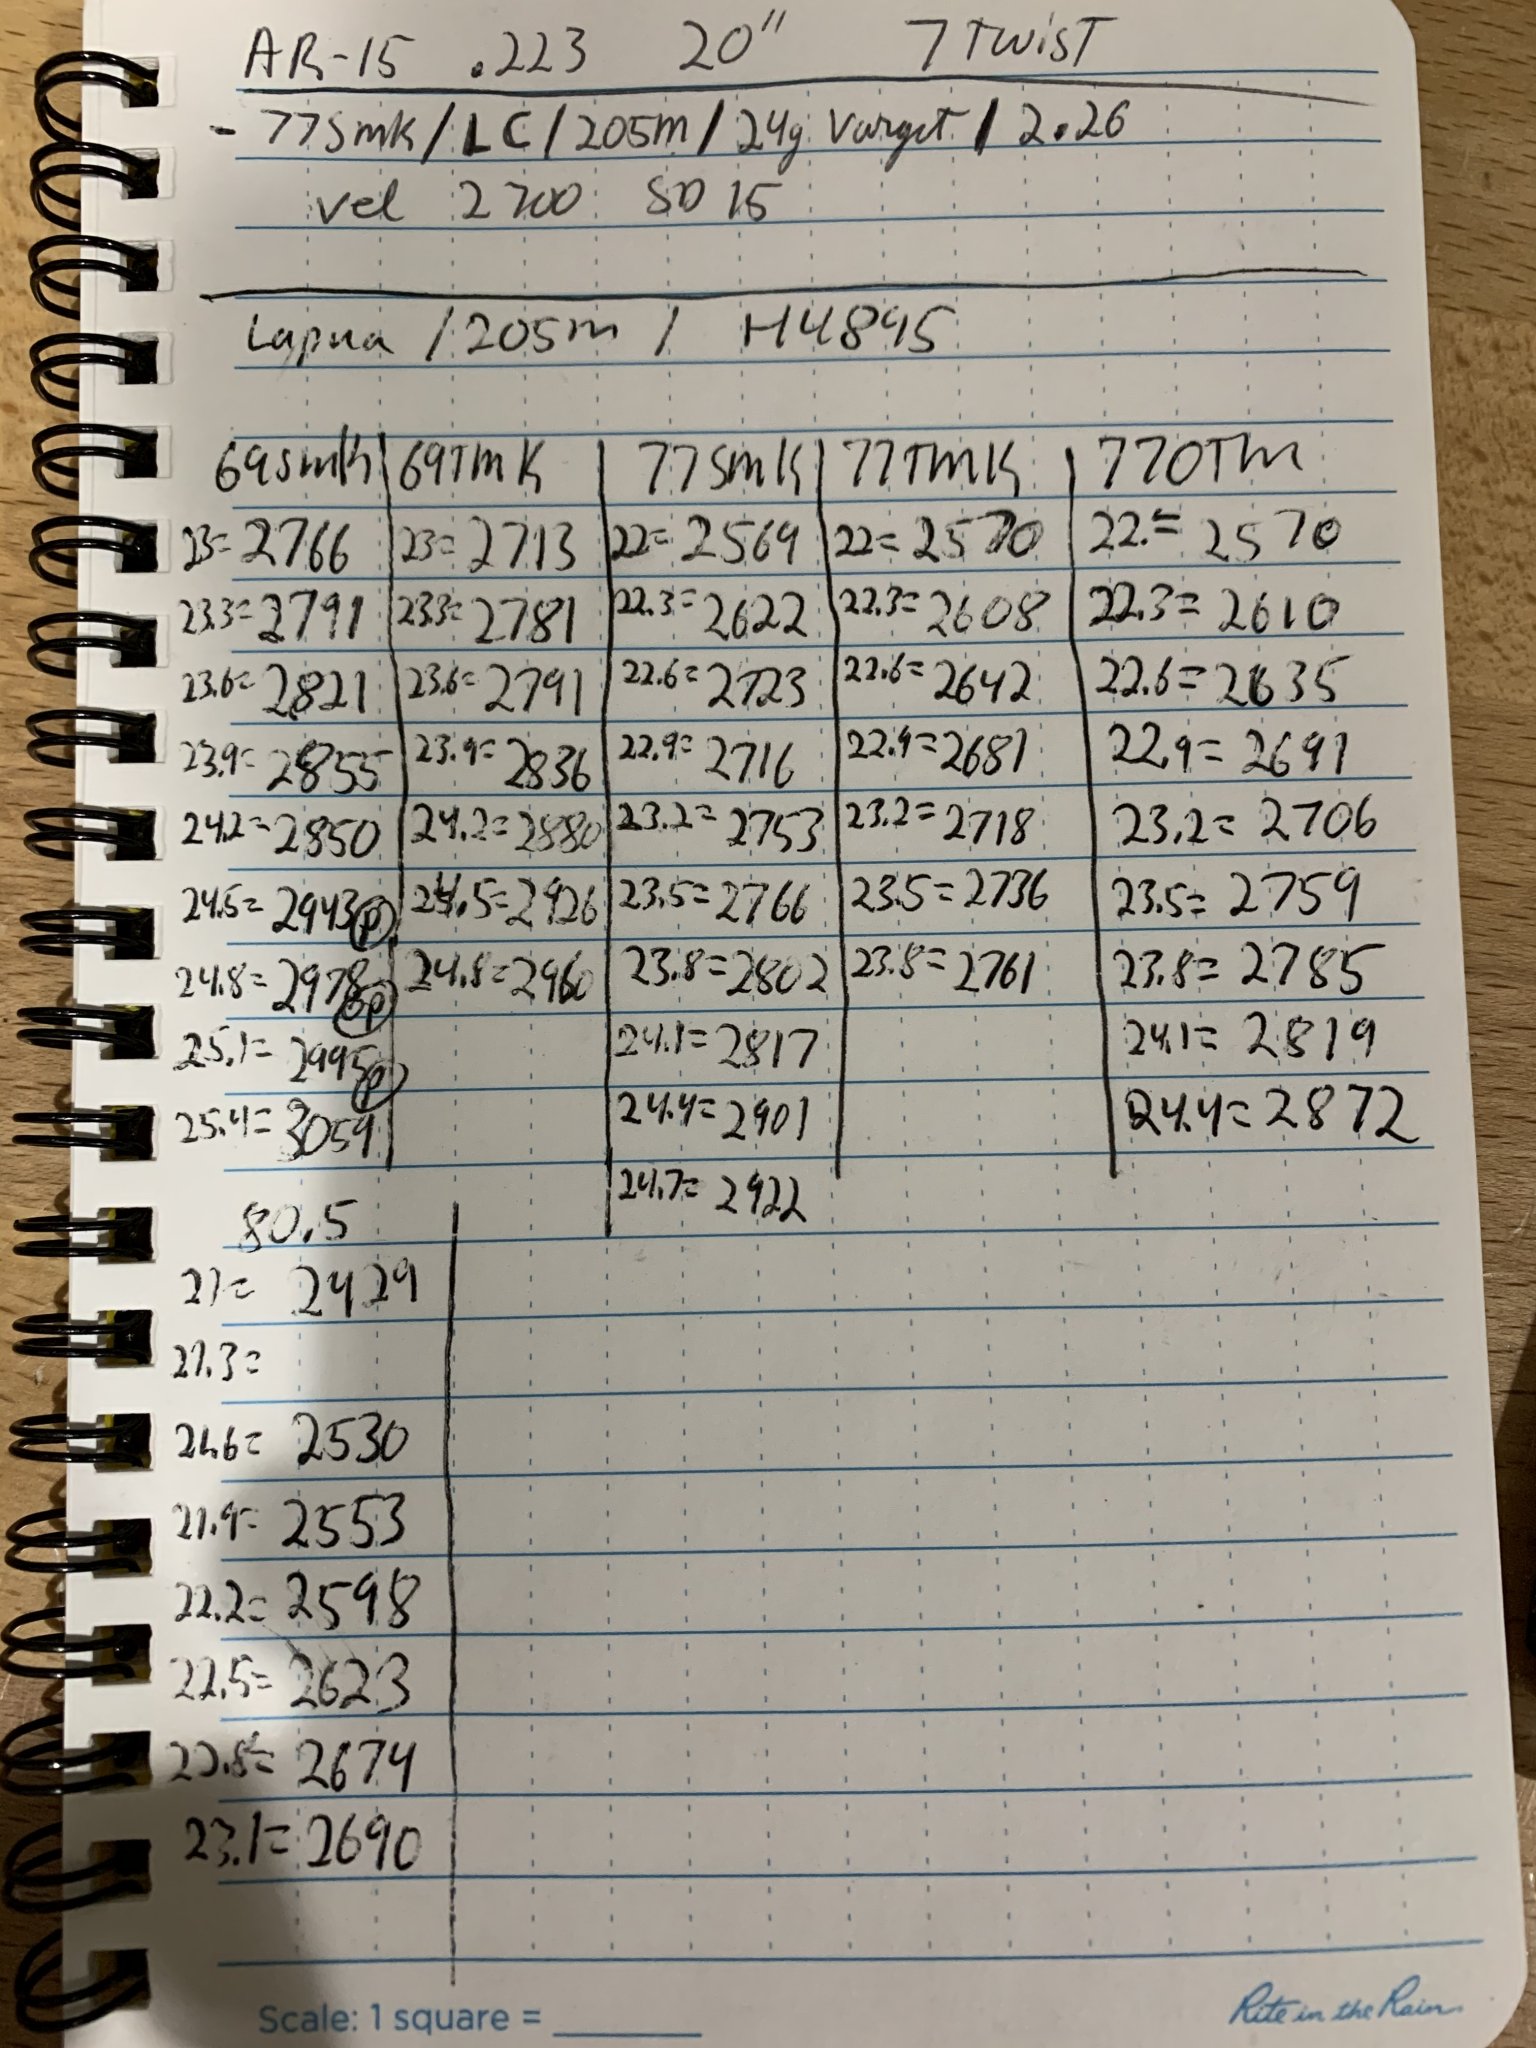 AR-15 .223 20" 7 TWIST
- 77SMK / LC / 205M / 24g Varget / 2.26
Vel 2700 SD 15
Lapua / 205m / H4895
69SMK 69TMK 77SMK 77TMK 77OTM
23= 2766 23= 2713 22= 2569 22= 2570 22.= 2570
23.3= 2791 23.3= 2781 22.3= 2622 22.3= 2608 22.3= 2610
23.6= 2821 23.6= 2791 22.6= 2723 22.6= 2642 22.6= 2635
23.9= 2855 23.9= 2836 22.9= 2716 22.9= 2681 22.9= 2691
24.2= 2850 24.2= 2880 23.2= 2753 23.2= 2718 23.2= 2706
24.5= 2943 P 24.5= 2926 23.5= 2766 23.5= 2736 23.5= 2759
24.8= 2978 P 24.8= 2960 23.8= 2802 23.8= 2761 23.8= 2785
25.1= 2995 P 24.1= 2817 24.1= 2819
25.4= 3059 24.4= 2901 24.4= 2872
24.7= 2922
80.5
21= 2429
21.3=
21.6= 2530
21.9= 2553
22.2= 2598
22.5= 2623
22.8= 2674
23.1= 2690
Scale: 1 square = ______
Rite in the Rain